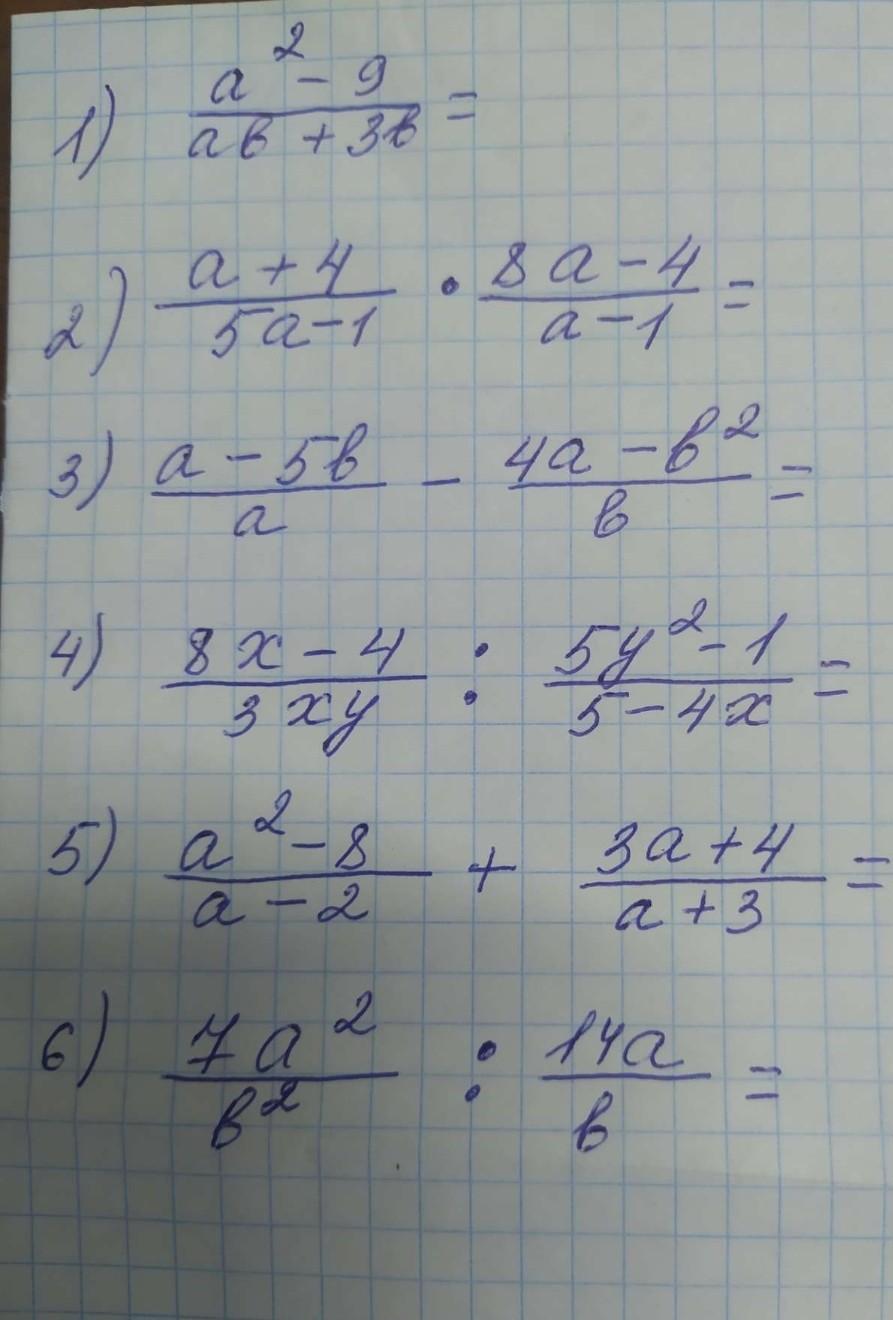 1) (a² - 9)/(ab + 3b) =
2) (a + 4)/(5a - 1) · (8a - 4)/(a - 1) =
3) (a - 5b)/a - (4a - b²)/b =
4) (8x - 4)/(3xy) : (5y² - 1)/(5 - 4x) =
5) (a² - 8)/(a - 2) + (3a + 4)/(a + 3) =
6) 7a²/b² : 14a/b =